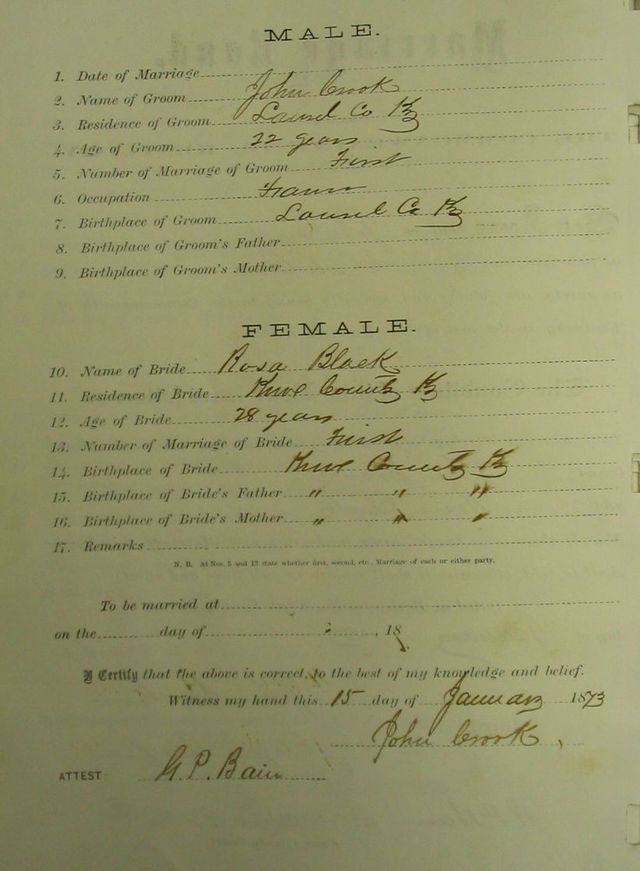 MALE.
1. Date of Marriage
2. Name of Groom John Crook
3. Residence of Groom Laurel Co Ky
4. Age of Groom 22 years
5. Number of Marriage of Groom First
6. Occupation Farmer
7. Birthplace of Groom Laurel Co Ky
8. Birthplace of Groom's Father
9. Birthplace of Groom's Mother
FEMALE.
10. Name of Bride Rosa Black
11. Residence of Bride Knox County Ky
12. Age of Bride 28 years
13. Number of Marriage of Bride First
14. Birthplace of Bride Knox County Ky
15. Birthplace of Bride's Father " " "
16. Birthplace of Bride's Mother " " "
17. Remarks
N. B. At Nos. 5 and 13 state whether first, second, etc., Marriage of each or either party.
To be married at
on the day of , 18
I Certify that the above is correct, to the best of my knowledge and belief.
Witness my hand this 15 day of January 1873
John Crook,
ATTEST G. P. Bain